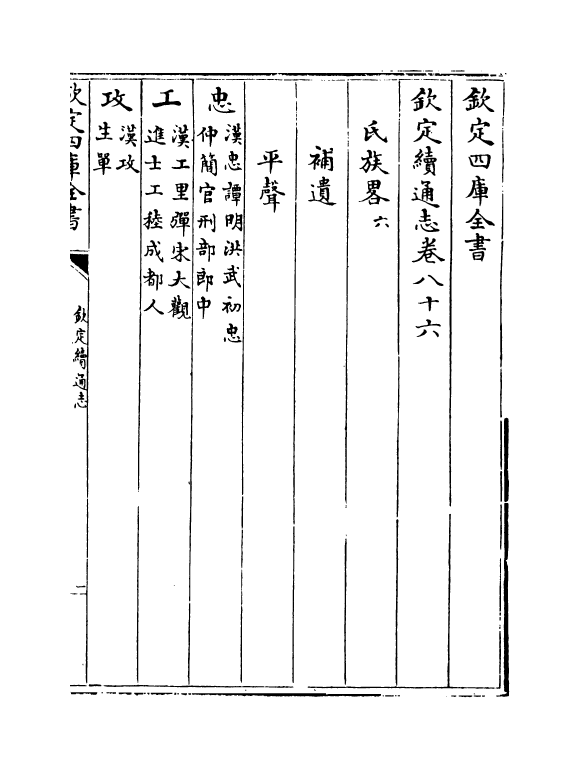 欽定四庫全書
欽定續通志卷八十六
氏族畧六
補遺
平聲
忠漢忠譚明洪武初忠
仲簡官刑部郎中
工漢工里彈宋大觀
進士工稜成都人
攻漢攻
生單
欽定四庫全書
欽定續通志
二